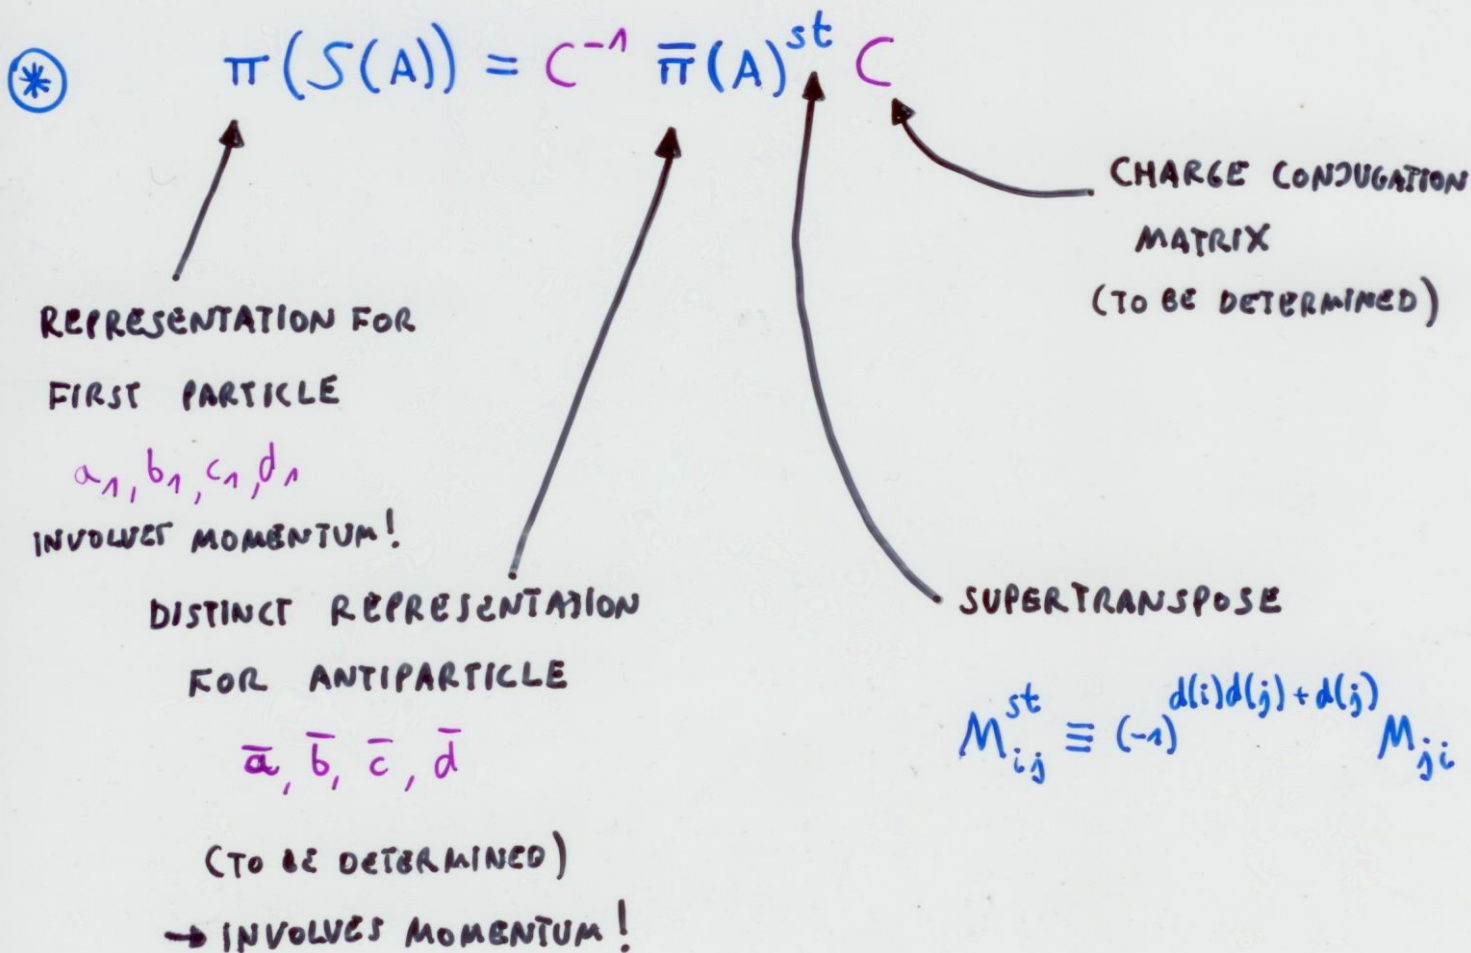 ⊛ π(S(A)) = C⁻¹ π̄(A)^st C
CHARGE CONJUGATION
MATRIX
(TO BE DETERMINED)
REPRESENTATION FOR
FIRST PARTICLE
a₁, b₁, c₁, d₁
INVOLVES MOMENTUM!
DISTINCT REPRESENTATION
FOR ANTIPARTICLE
ā, b̄, c̄, d̄
(TO BE DETERMINED)
→ INVOLVES MOMENTUM!
SUPERTRANSPOSE
M^st_ij ≡ (-1)^{d(i)d(j) + d(j)} M_ji